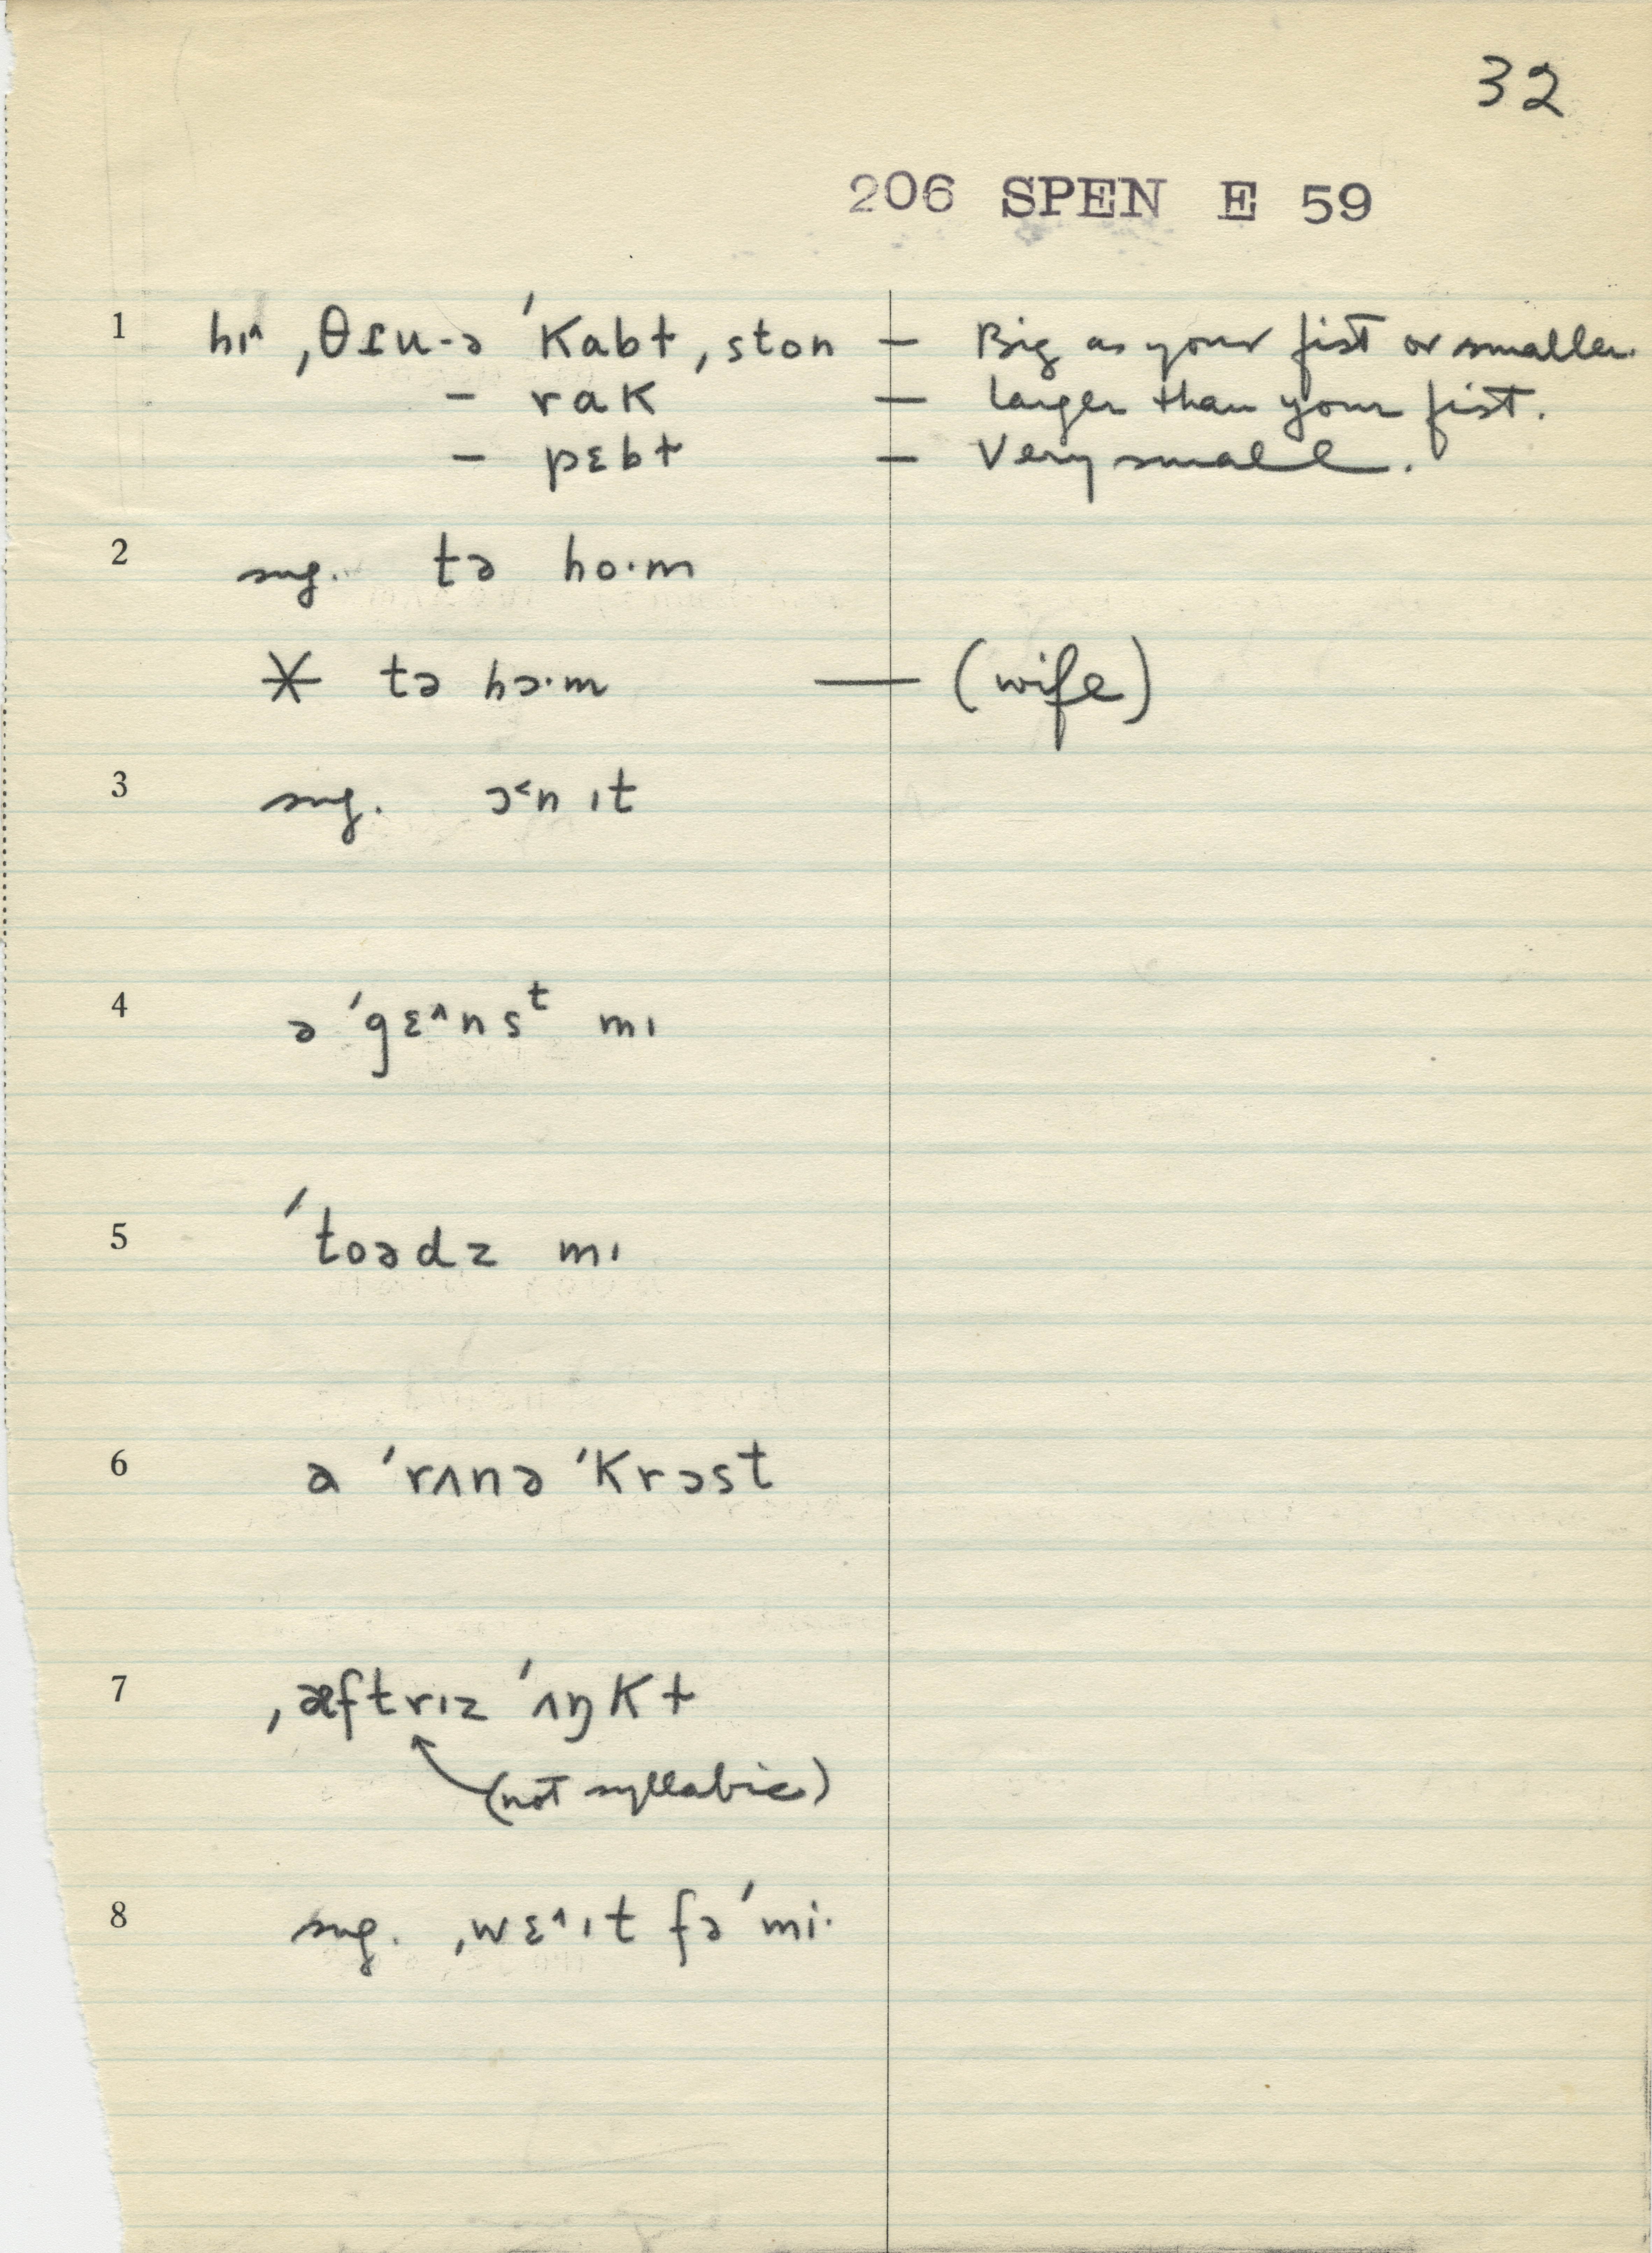 32
206 SPEN E 59
1 hɪ^ ,θɪu-ə 'kabɫ ,ston — Big as your fist or smaller.
– rak — larger than your fist.
– pɛbɫ — Very small.
2 sug. tə ho·m
* tə hɔ·m — (wife)
3 sug. ɔ˂nɪt
4 ə 'gɛ^nsᵗ mɪ
5 'toədz mɪ
6 a 'rʌnə 'krɔst
7 ,æftrɪz 'ʌŋkɫ
(not syllabic)
8 sug. ,wɛ^ɪt fə 'mi·